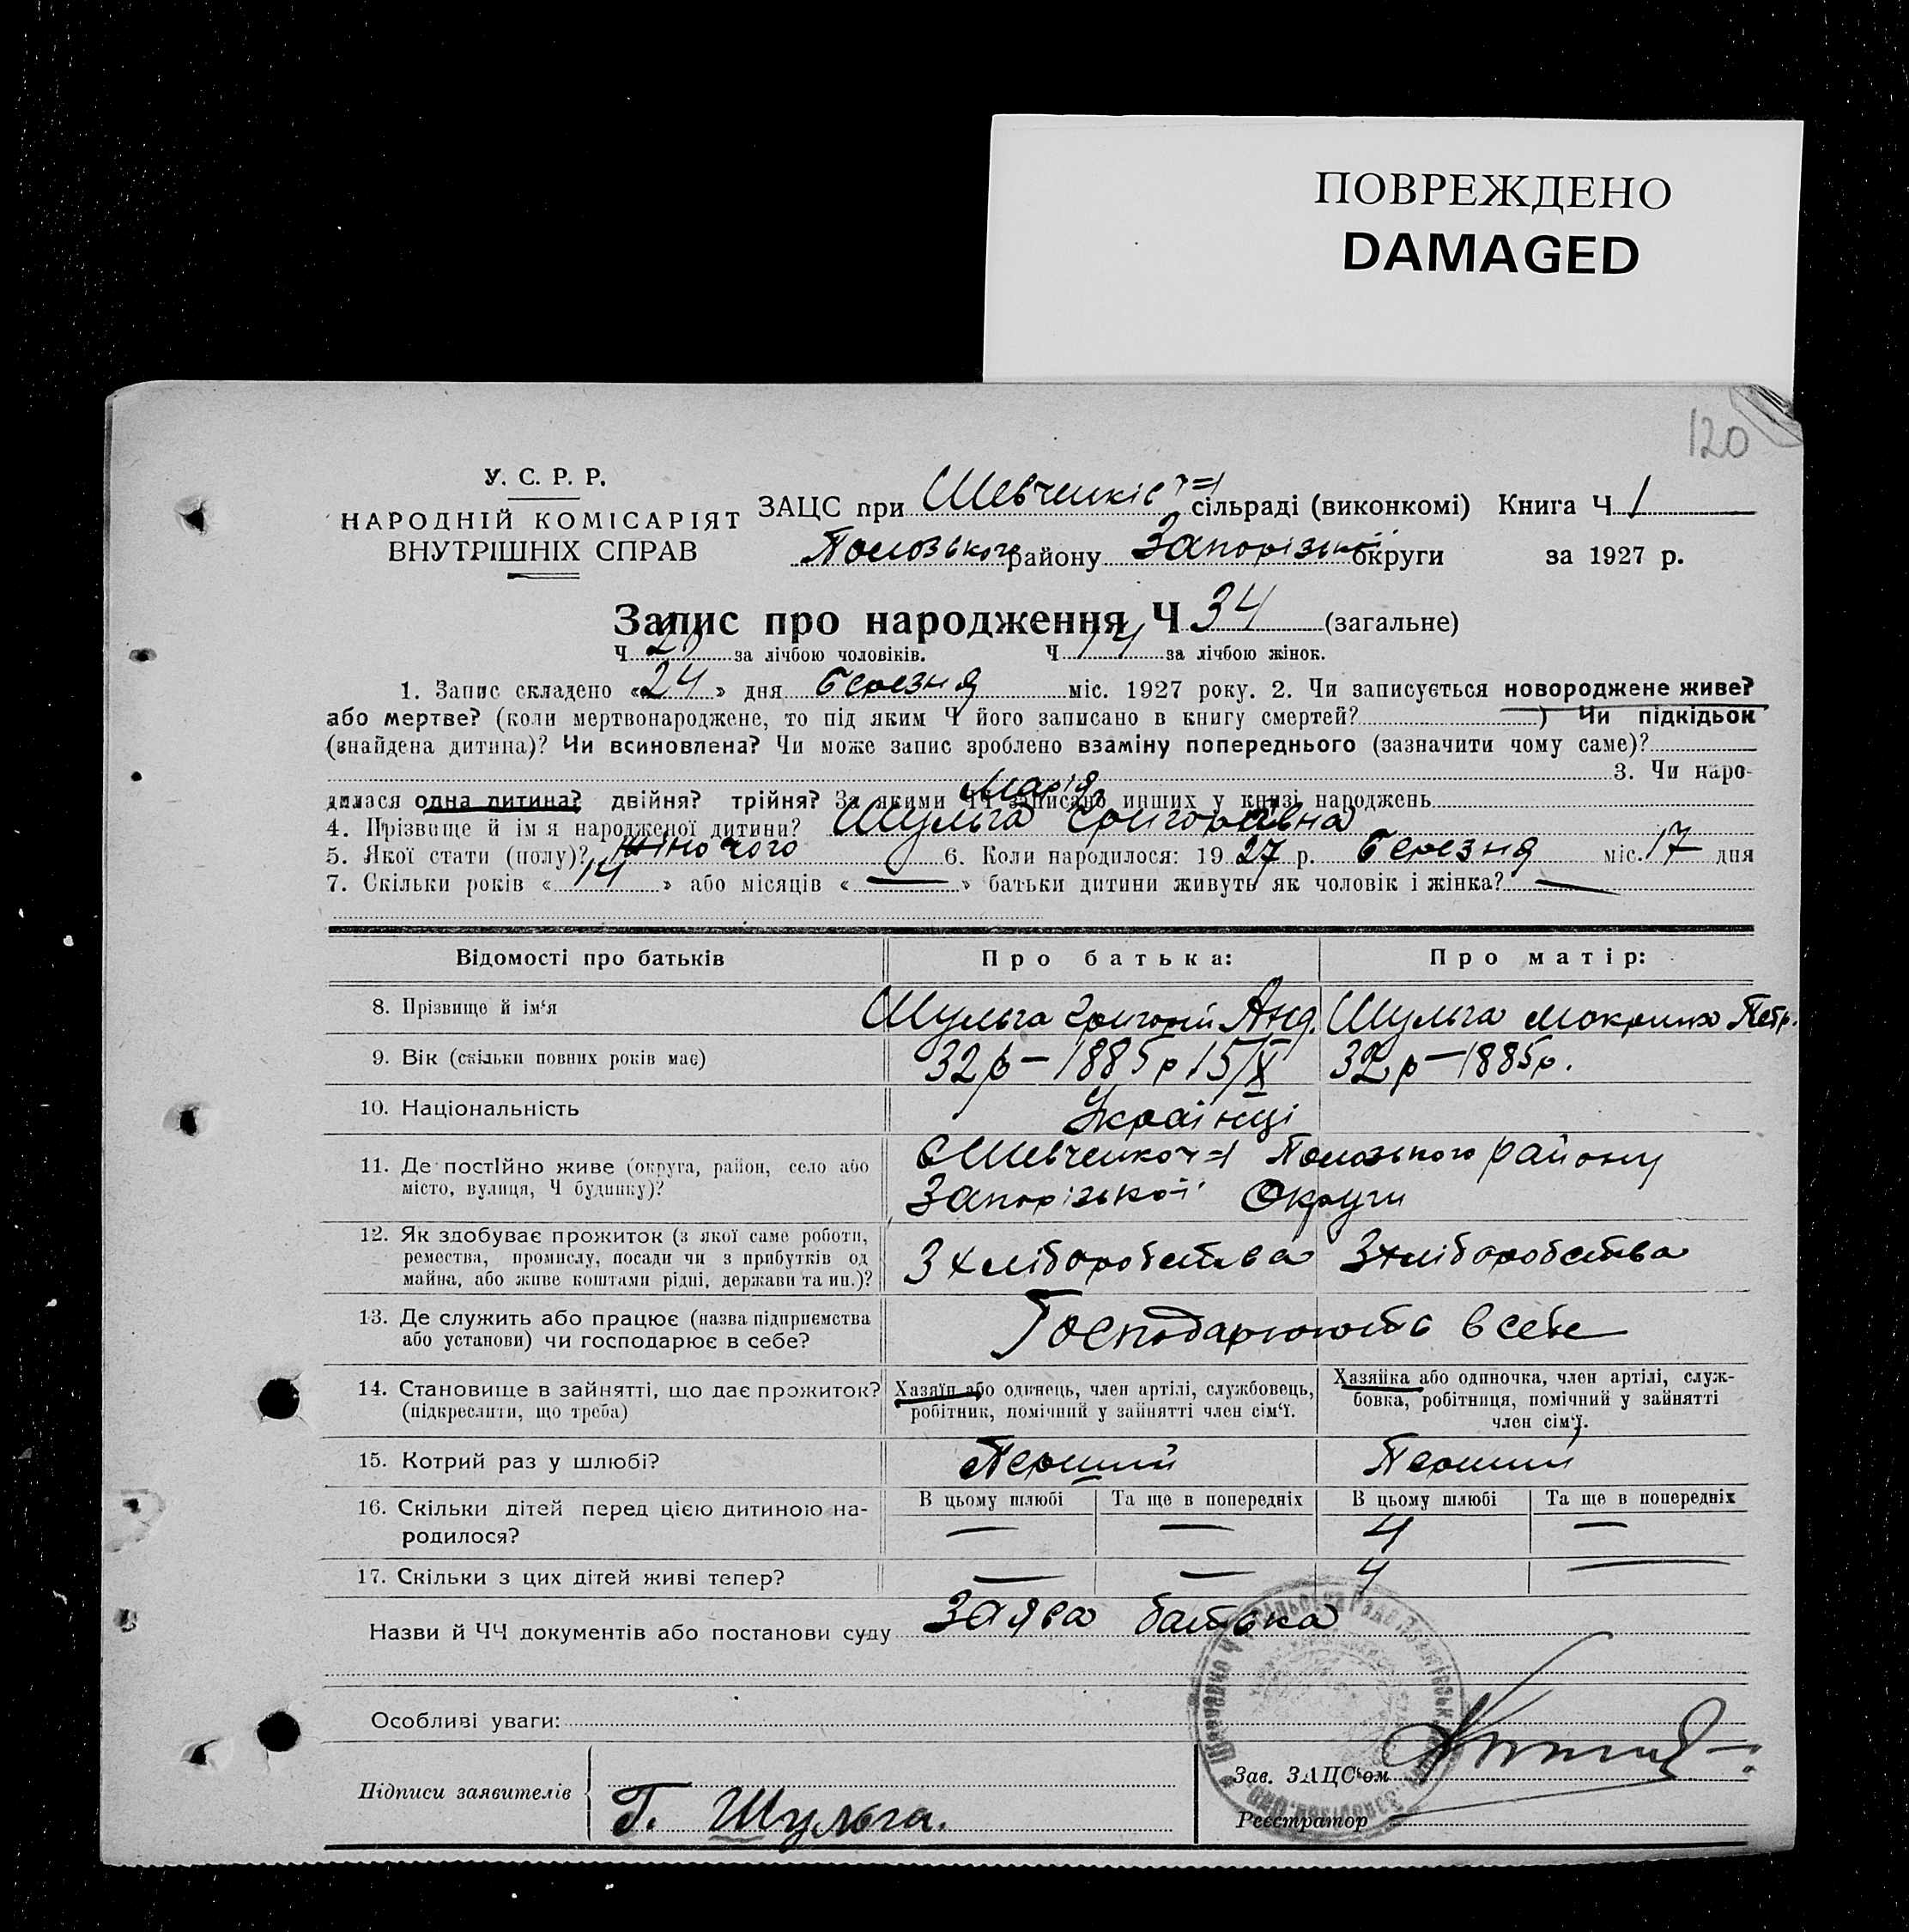 ПОВРЕЖДЕНО
DAMAGED
120
У. С. Р. Р.
НАРОДНІЙ КОМІСАРІЯТ
ВНУТРІШНІХ СПРАВ
ЗАЦС при Шевченків сільраді (виконкомі) Книга Ч 1
Пологського району Запорізької округи за 1927 р.
Запис про народження Ч 34 (загальне)
Ч 20 за лічбою чоловіків. Ч 14 за лічбою жінок.
1. Запис складено «24» дня березня міс. 1927 року. 2. Чи записується новороджене живе?
або мертве? (коли мертвонароджене, то під яким Ч його записано в книгу смертей? ) Чи підкідьок
(знайдена дитина)? Чи всиновлена? Чи може запис зроблено взаміну попереднього (зазначити чому саме)?
3. Чи наро-
дилася одна дитина? двійня? трійня? За якими ЧЧ записано инших у книзі народжень
Марія
4. Прізвище й ім'я народженої дитини? Шульга Григорівна
5. Якої стати (полу)? жіночого 6. Коли народилося: 1927 р. березня міс. 17 дня
7. Скільки років «14» або місяців «—» батьки дитини живуть як чоловік і жінка? —
Відомості про батьків Про батька: Про матір:
8. Прізвище й ім'я Шульга Григорій Анд. Шульга Мокрина Петр.
9. Вік (скільки повних років має) 32 р — 1885 р 15/X 32 р — 1885 р.
10. Національність Українці
11. Де постійно живе (округа, район, село або
місто, вулиця, Ч будинку)?
Пологського району
Запорізької Округи
12. Як здобуває прожиток (з якої саме роботи,
ремества, промислу, посади чи з прибутків од
майна, або живе коштами рідні, держави та ин.)?
З хліборобства З хліборобства
13. Де служить або працює (назва підприємства
або установи) чи господарює в себе?
Господарюють в себе
14. Становище в зайнятті, що дає прожиток?
(підкреслити, що треба)
Хазяїн або одинець, член артілі, службовець,
робітник, помічний у зайнятті член сім'ї.
Хазяйка або одиночка, член артілі, служ-
бовка, робітниця, помічний у зайнятті
член сім'ї.
15. Котрий раз у шлюбі? Перший Перший
16. Скільки дітей перед цією дитиною на-
родилося?
В цьому шлюбі Та ще в попередніх В цьому шлюбі Та ще в попередніх
— — 4 —
17. Скільки з цих дітей живі тепер? — — 4 —
Назви й ЧЧ документів або постанови суду Заява батька
Особливі уваги:
Підписи заявителів Г. Шульга.
Зав. ЗАЦС'ом
Реєстратор